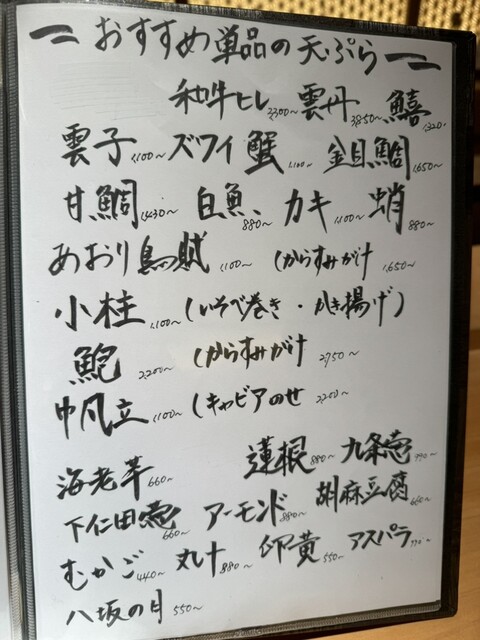 おすすめ単品の天ぷら
和牛ヒレ2,200～ 雲丹3,850～ 鱚1,320～
雲子1,100～ ズワイ蟹1,100～ 金目鯛1,650～
甘鯛1,430～ 白魚880～ カキ1,100～ 蛸880～
あおり烏賊1,100～ (からすみがけ1,650～
小柱1,100～ (いそべ巻き・かき揚げ)
鮑2,200～ (からすみがけ2,750～
帆立1,100～ (キャビアのせ2,200～
海老芋660～ 蓮根880～ 九条葱770～
下仁田葱660～ アーモンド880～ 胡麻豆腐660～
むかご440～ 丸十880～ 卵黄550～ アスパラ770～
八坂の月550～